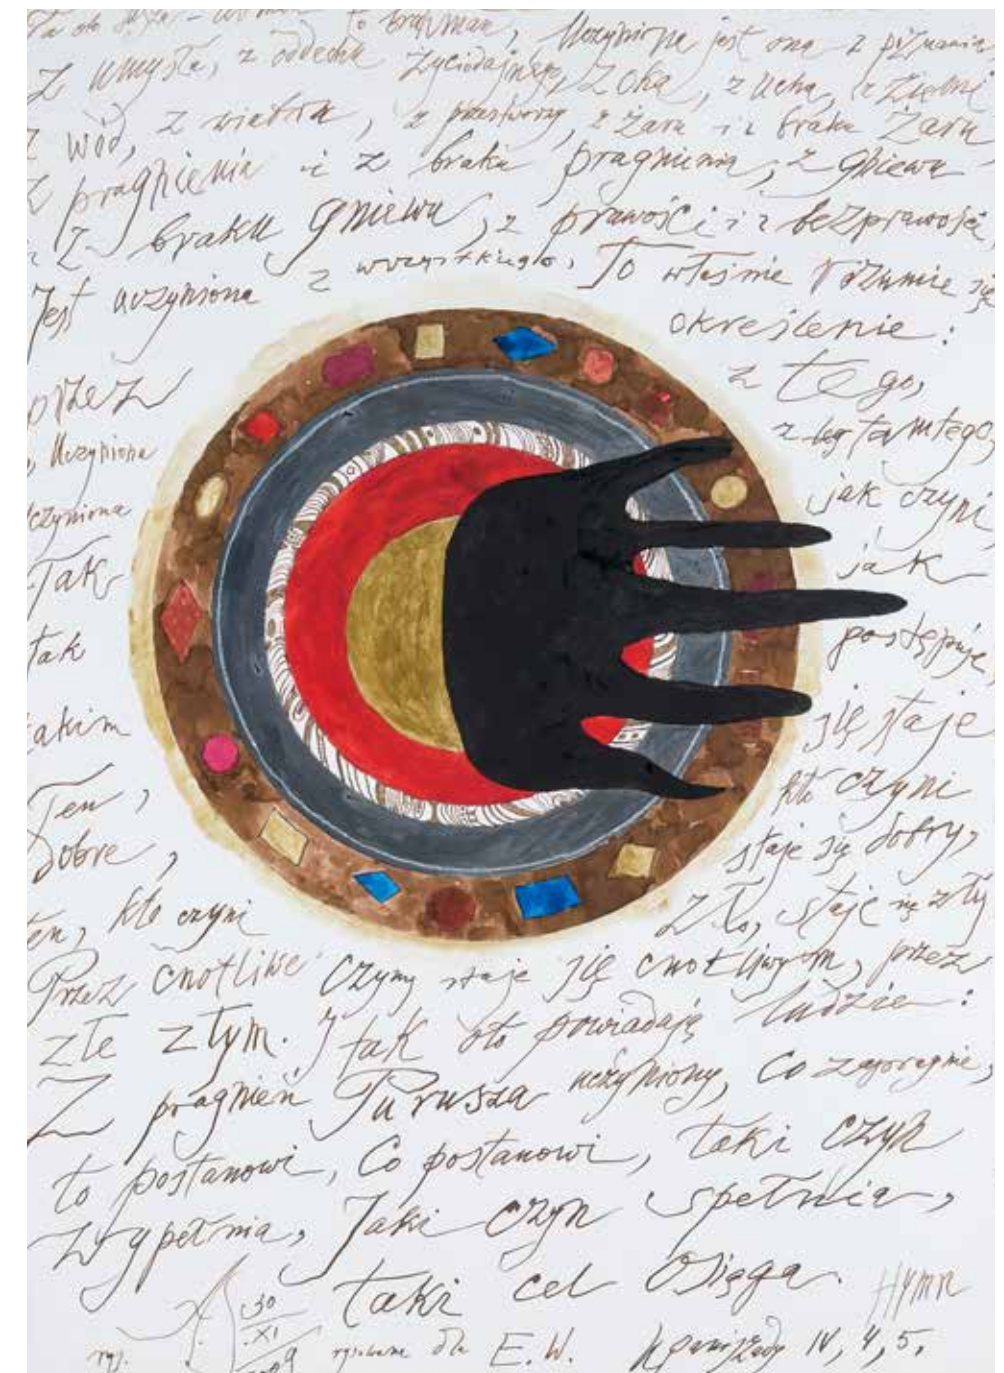 to brahman, Uczyniona jest ona z poznania,
Z umysłu, z oddechu życiodajnego, z oka, z ucha, z ziemi
z wód, z wiatru, z przestworzy, z żaru i z braku żaru
z pragnienia i z braku pragnienia, z gniewu
i z braku gniewu, z prawości i z bezprawości,
Jest uczyniona z wszystkiego. To właśnie rozumie się
przez określenie:
z tego,
, Uczyniona z tamtego,
uczyniona jak czyni,
Tak jak
tak postępuje,
takim się staje
Ten, kto czyni
dobre, staje się dobry,
ten, kto czyni zło, staje się zły
Przez cnotliwe czyny staje się cnotliwym, przez
złe złym. I tak oto powiadają ludzie:
Z pragnień Purusza uczyniony, Co zapragnie,
to postanowi, Co postanowi, taki czyn
wypełnia, Jaki czyn spełnia,
taki cel osiąga. Hymn
30
XI
rys. rysowane dla E.W. Upaniszady IV, 4, 5.